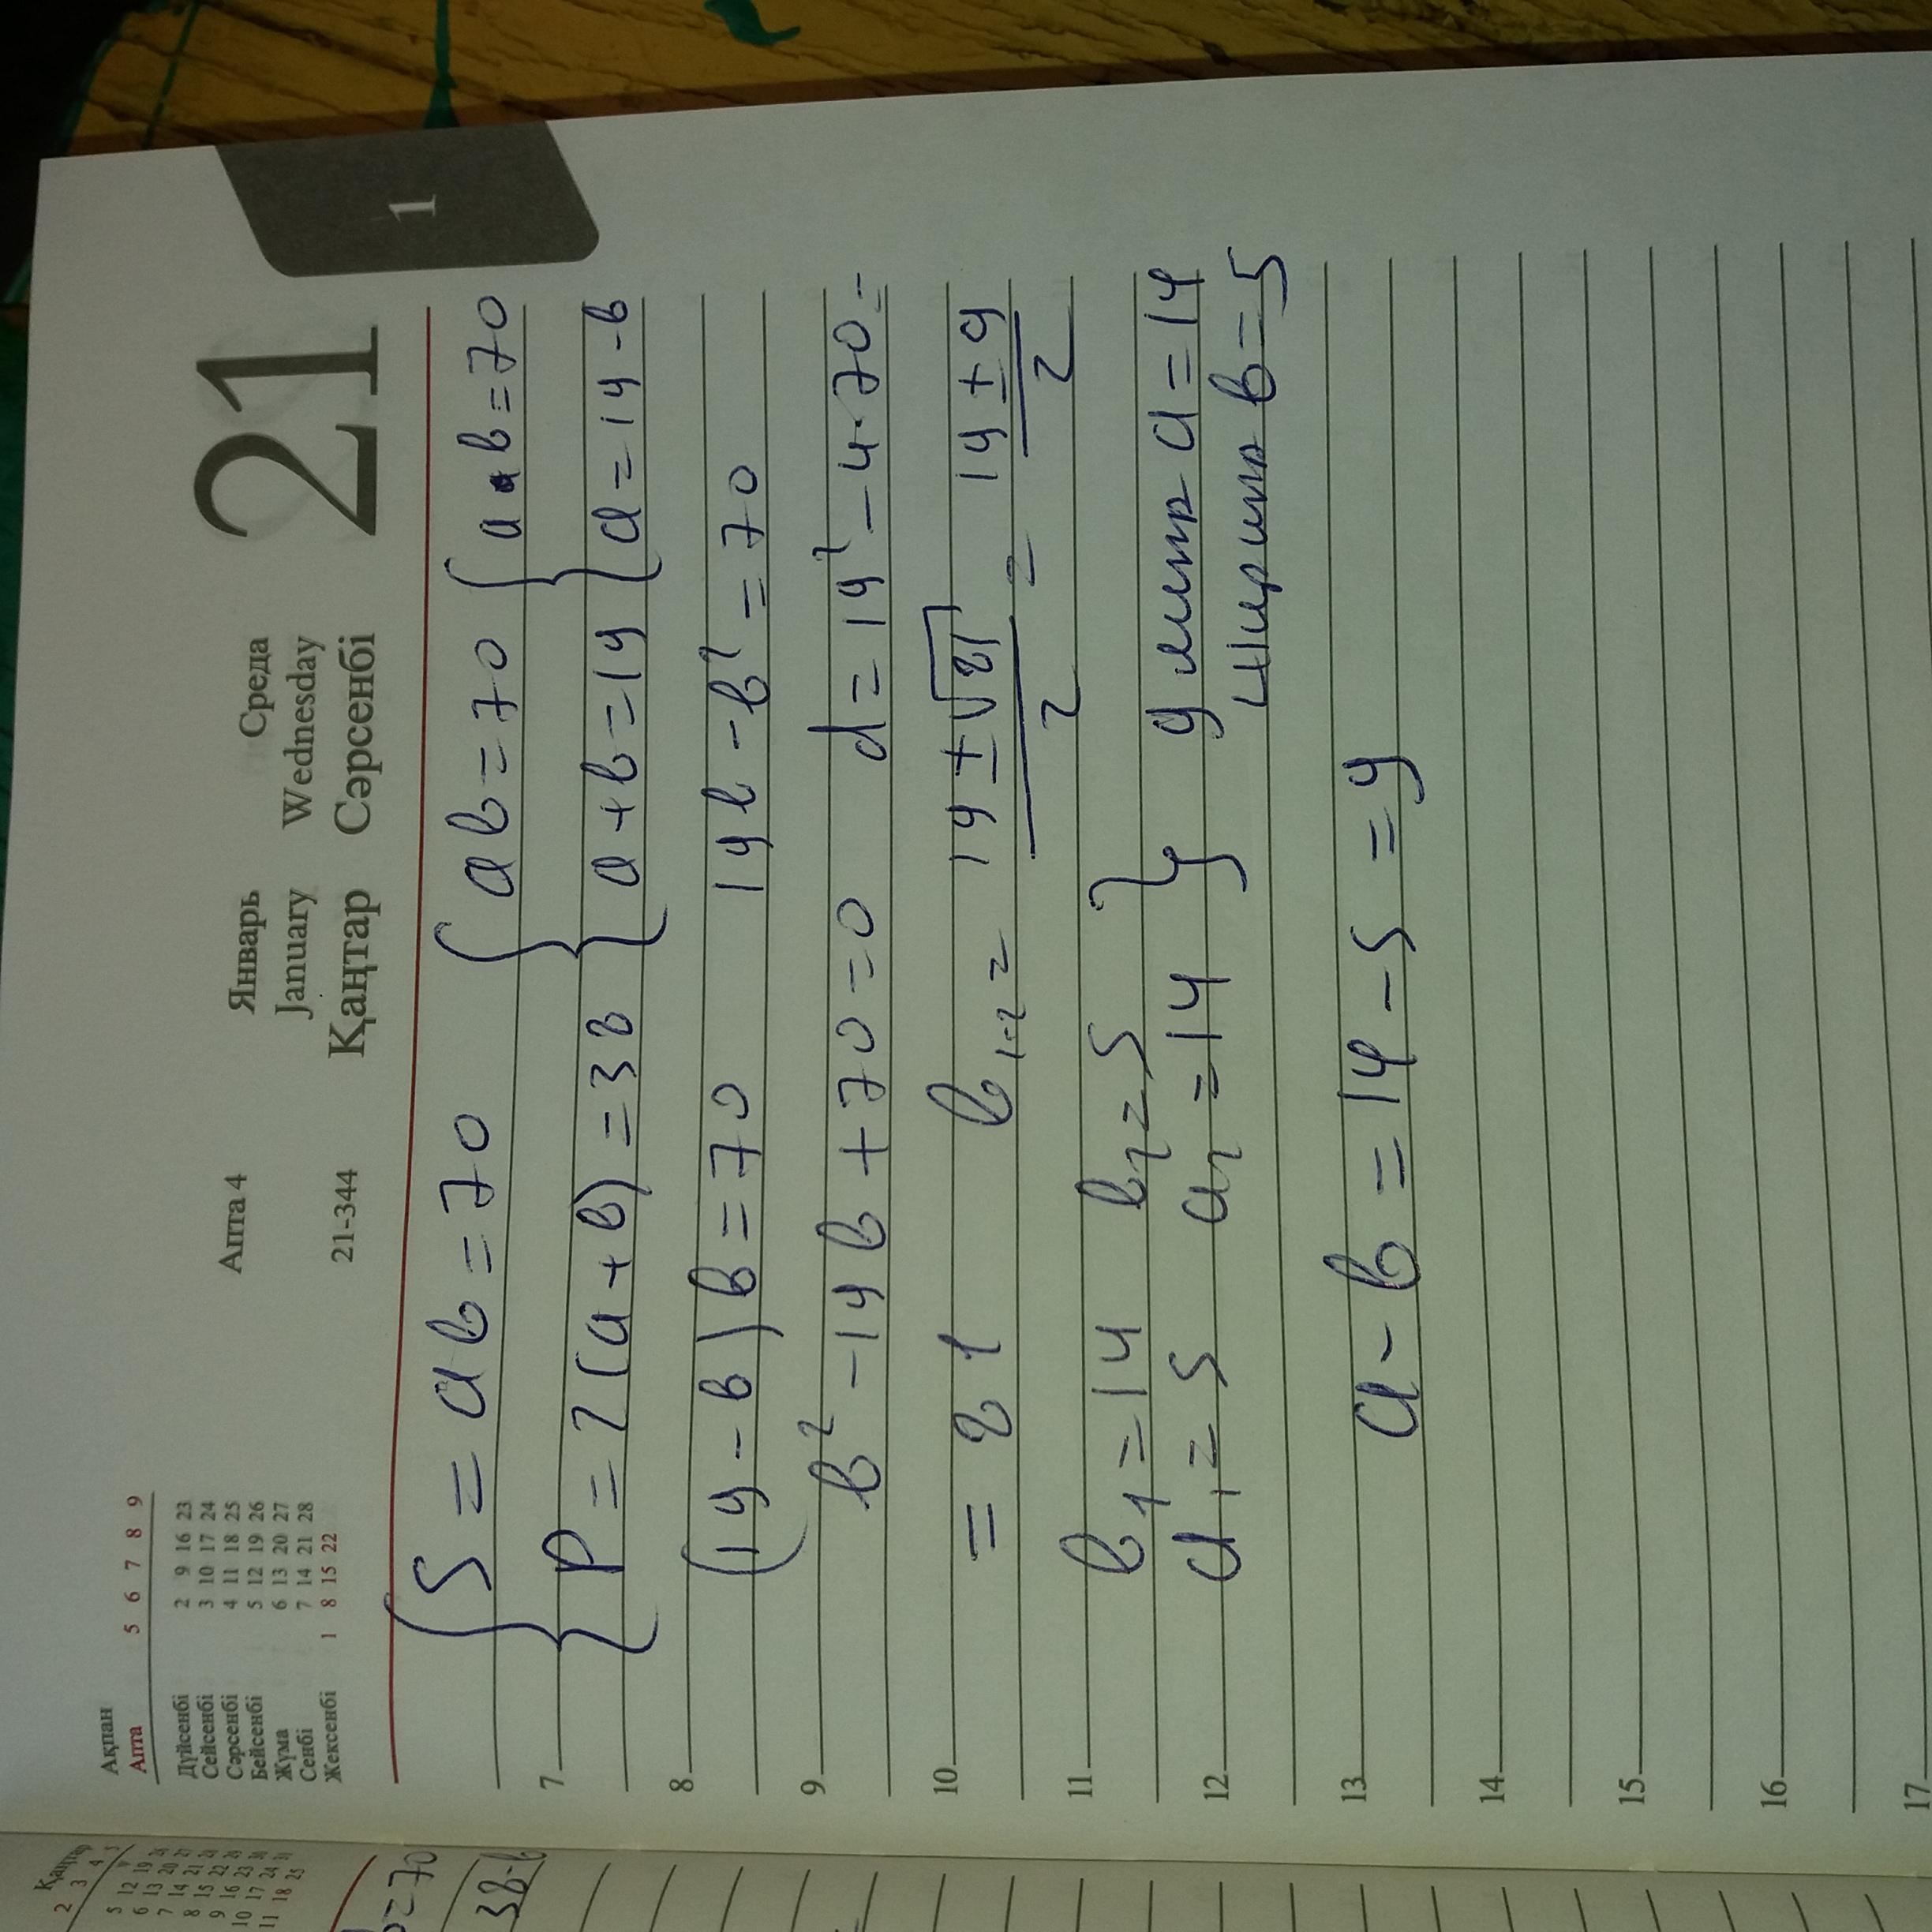 Ақпан
Апта 5 6 7 8 9
Дүйсенбі 2 9 16 23
Сейсенбі 3 10 17 24
Сәрсенбі 4 11 18 25
Бейсенбі 5 12 19 26
Жұма 6 13 20 27
Сенбі 7 14 21 28
Жексенбі 1 8 15 22
Апта 4
21-344
Январь Среда
January Wednesday
Қаңтар Сәрсенбі
21
1
{S = ab = 70 {ab = 70 {a·b = 70
{P = 2(a+b) = 38 {a+b = 19 {a = 19-b
(19-b)b = 70 19b - b² = 70
b² - 19b + 70 = 0 d = 19² - 4·70 =
= 81 b₁,₂ = 19±√81/2 = 19±9/2
b₁ = 14 b₂ = 5
a₁ = 5 a₂ = 14 } длина a = 14
Ширина b = 5
a - b = 14 - 5 = 9
7
8
9
10
11
12
13
14
15
16
17
Қаңтар
2 3 4
5 12 19
6 13 20 27
7 14 21 28
8 15 22 29
9 16 23 30
10 17 24 31
11 18 25
=70
38-b